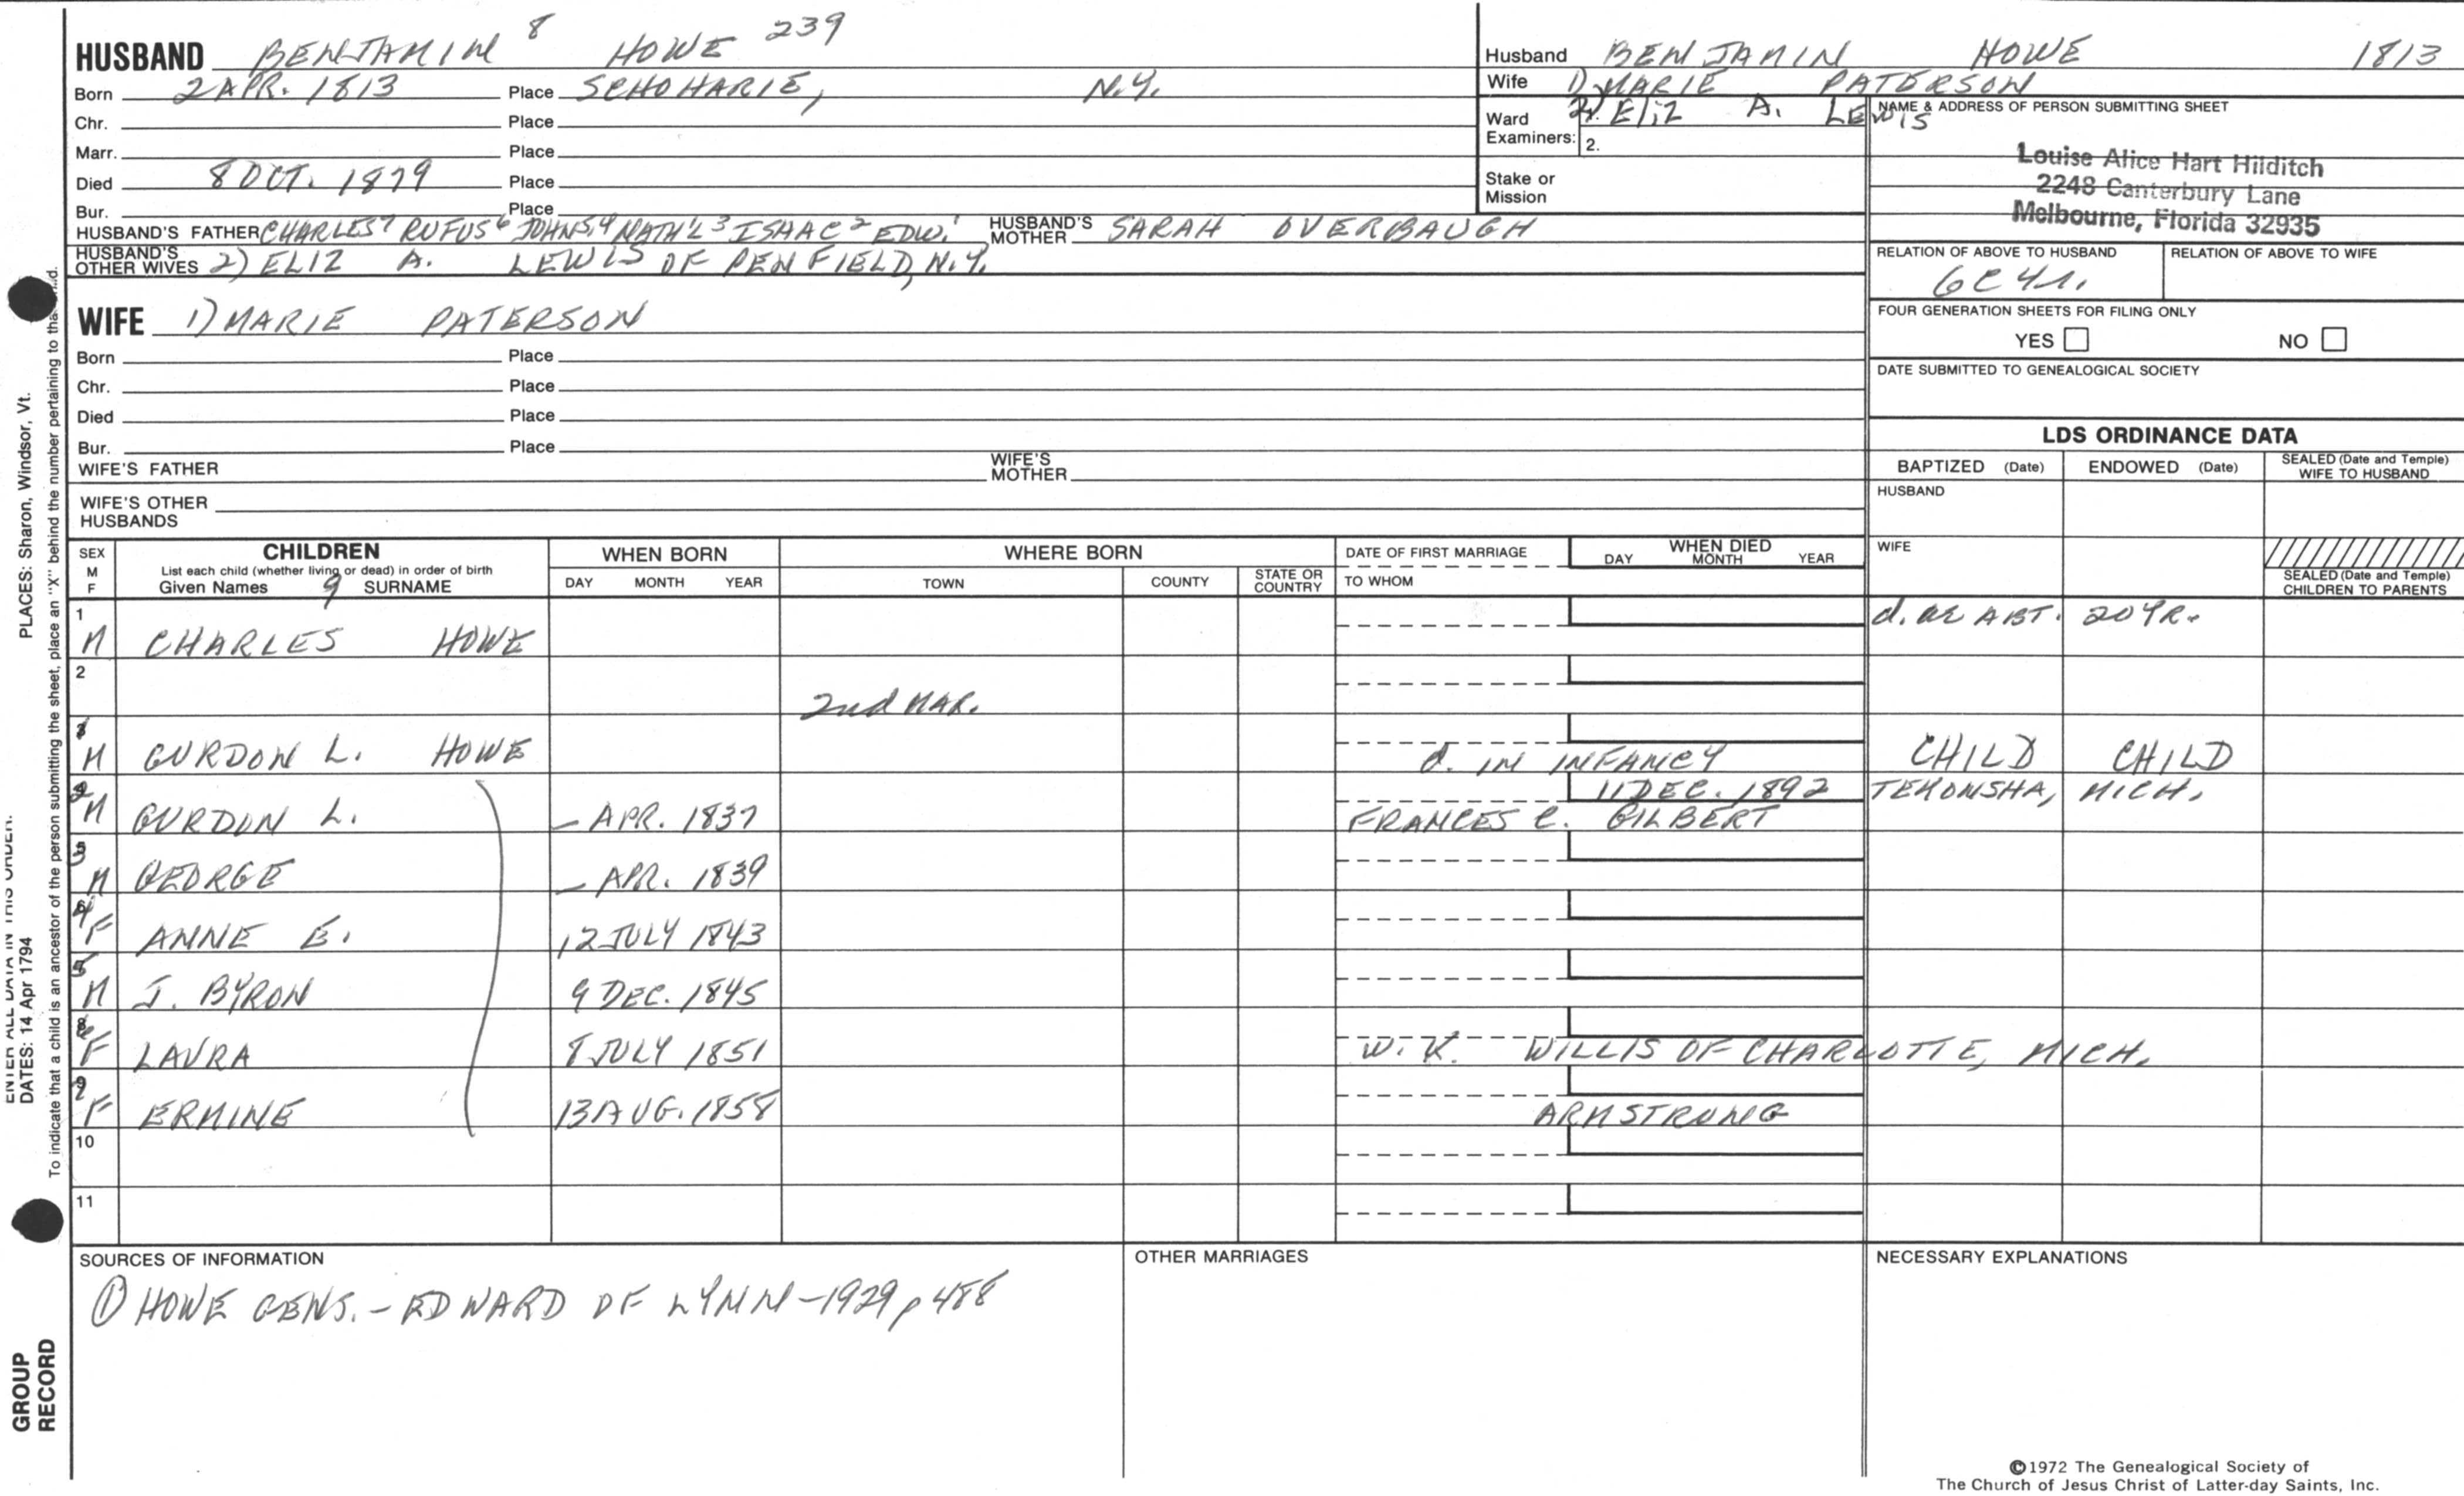 HUSBAND BENJAMIN 8 HOWE 239
Born 2 APR. 1813 Place SCHOHARIE, N.Y.
Chr. Place
Marr. Place
Died 8 OCT. 1879 Place
Bur. Place
HUSBAND'S FATHER CHARLES7 RUFUS6 JOHN5,4 NATH'L3 ISAAC2 EDW.1 HUSBAND'S MOTHER SARAH OVERBAUGH
HUSBAND'S OTHER WIVES 2) ELIZ A. LEWIS OF PENFIELD, N.Y.
WIFE 1) MARIE PATERSON
Born Place
Chr. Place
Died Place
Bur. Place
WIFE'S FATHER WIFE'S MOTHER
WIFE'S OTHER HUSBANDS
Husband BENJAMIN HOWE 1813
Wife 1) MARIE PATERSON
2. ELIZ A. LEWIS
Ward
Examiners: 2.
Stake or
Mission
NAME & ADDRESS OF PERSON SUBMITTING SHEET
Louise Alice Hart Hilditch
2248 Canterbury Lane
Melbourne, Florida 32935
RELATION OF ABOVE TO HUSBAND RELATION OF ABOVE TO WIFE
6C4r.
FOUR GENERATION SHEETS FOR FILING ONLY
YES NO
DATE SUBMITTED TO GENEALOGICAL SOCIETY
LDS ORDINANCE DATA
BAPTIZED (Date) ENDOWED (Date) SEALED (Date and Temple) WIFE TO HUSBAND
HUSBAND
WIFE
SEALED (Date and Temple) CHILDREN TO PARENTS
SEX M F CHILDREN WHEN BORN WHERE BORN DATE OF FIRST MARRIAGE WHEN DIED
List each child (whether living or dead) in order of birth
Given Names 9 SURNAME DAY MONTH YEAR TOWN COUNTY STATE OR COUNTRY TO WHOM DAY MONTH YEAR
1 M CHARLES HOWE d. ae ABT. 20 YR.
2 2nd MAR.
M GURDON L. HOWE d. IN INFANCY CHILD CHILD
2 M GURDON L. - APR. 1837 11 DEC. 1892 TEKONSHA, MICH.
FRANCES C. GILBERT
3 M GEORGE - APR. 1839
4 F ANNE E. 12 JULY 1843
5 M J. BYRON 9 DEC. 1845
6 F LAURA 8 JULY 1851 W. K. WILLIS OF CHARLOTTE, MICH.
7 F ERMINE 13 AUG. 1858 ARMSTRONG
10
11
SOURCES OF INFORMATION OTHER MARRIAGES NECESSARY EXPLANATIONS
① HOWE GENS. - EDWARD OF LYNN - 1929 p 488
©1972 The Genealogical Society of
The Church of Jesus Christ of Latter-day Saints, Inc.
DATES: 14 Apr 1794
PLACES: Sharon, Windsor, Vt.
To indicate that a child is an ancestor of the person submitting the sheet, place an "X" behind the number pertaining to that child.
GROUP
RECORD